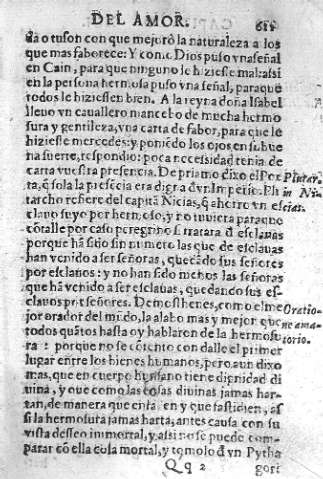 DEL AMOR. 615
da o tuson con que mejorô la naturaleza a los
que mas faborece: Y como Dios puso vna señal
en Cain, para que ninguno le hiziesse mal: assi
en la persona hermosa puso vna señal, paraque
todos le hiziessen bien. A la reyna doña Isabel
lleuo vn cauallero mancebo de mucha hermo
sura y gentileza, vna carta de fabor, para que le
hiziesse mercedes: y poniẽdo los ojos en su bue
na suerte, respondio: poca necessidad tenia de
carta vuestra presencia. De priamo dixo el Poe
ta, q̃ sola la presẽcia era digna d̃ vn Imperio. Plu
Plutar.
tarcho refiere del capitã Nicias, q̃ ahorro vn es
in Ni-
clauo suyo por hermoso, y no tuuiera para que
cias.
cõtalle por caso peregrino si tratara d̃ esclauas
porque hã sido sin numero las que de esclauas
han venido a ser señoras, quedãdo sus señores
por esclauos: y no han sido menos las señoras
que hã venido a ser esclauas, quedando sus es-
clauos por señores. Demosthenes, como el me
Oratio-
jor orador del mũdo, la alabo mas y mejor que
ne ama-
todos quãtos hasta oy hablaron de la hermosu
torio.
ra: porque no se cõtento con dalle el primer
lugar entre los bienes humanos, pero aun dixo
mas, que en cuerpo humano tiene dignidad di
uina, y que como las cosas diuinas jamas har-
tan, de manera que enfaden y que fastidien, as
si la hermosura jamas harta, antes causa con su
vista desseo inmortal, y assi no se puede com-
parar cõ ella cosa mortal, y tomolo d̃ vn Pytha
Qq 2 gori